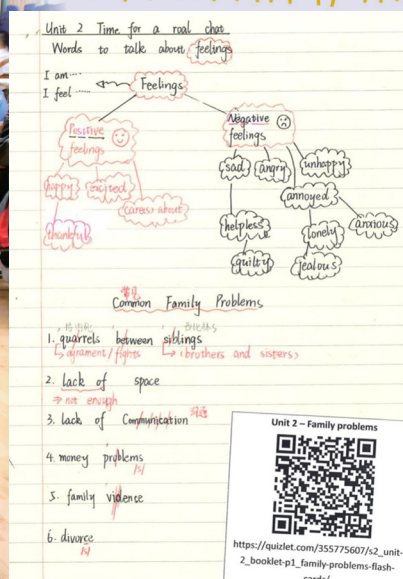 Unit 2 Time for a real chat
Words to talk about feelings
I am....
I feel .....
Feelings
Positive feelings
Negative feelings
happy
excited
cares about
thankful
sad
angry
unhappy
annoyed
helpless
lonely
anxious
guilty
jealous
常见
Common Family Problems
1. quarrels between siblings
agrament / fights
(brothers and sisters)
2. lack of space
⇒ not enough
3. lack of Communication 沟通
4. money problems
5. family violence
6. divorce
Unit 2 – Family problems
https://quizlet.com/355775607/s2_unit-
2_booklet-p1_family-problems-flash-
cards/